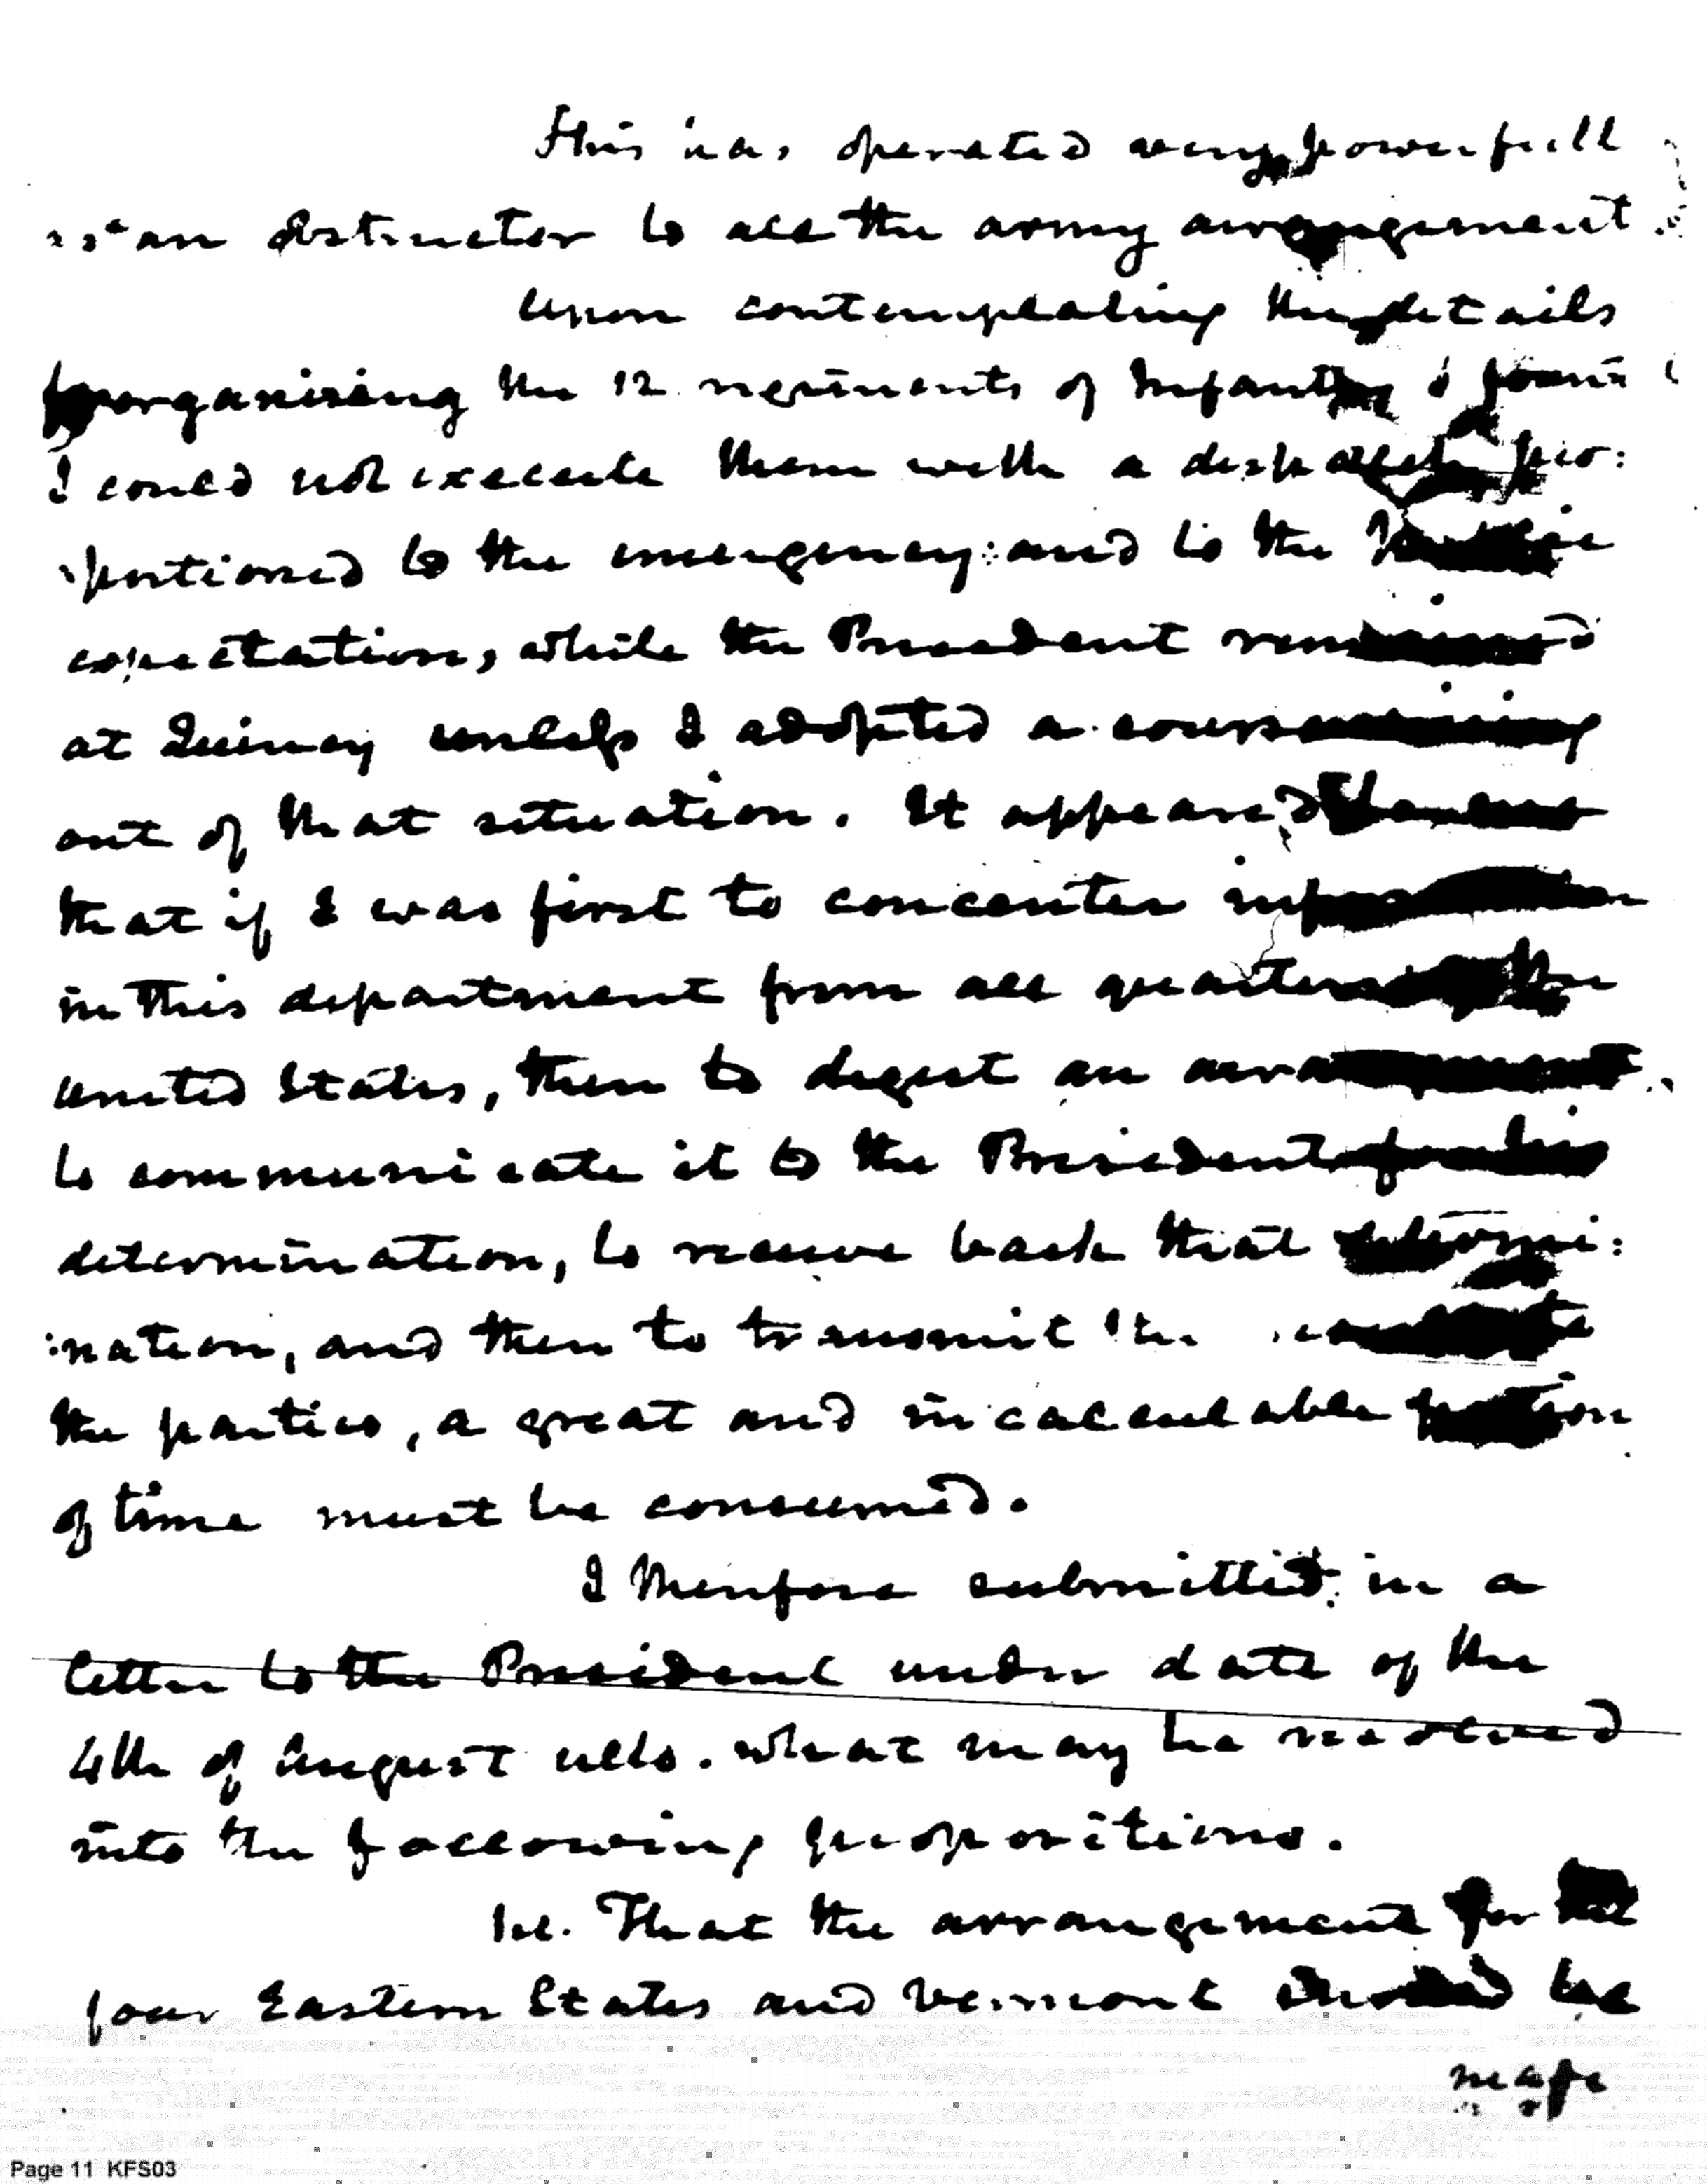 This has operated very powerfull
as an obstructor to all the army arrangement
Upon contemplating the details
for organizing the 12 regiments of Infantry I found
I could not execute them with a dispatch pro:
:portioned to the emergency: and to the Public
expectation, while the President remained
at Quincy unless I adopted a course arising
out of that situation. It appeared
that if I was first to concenter information
in this department from all quarters of the
United States, then to digest an arrangement
to communicate it to the President for his
determination, to receive back that determi:
:nation, and then to transmit the to
the parties, a great and incalculable portion
of time must be consumed.
I therefore submitted in a
letter to the President under date of the
4th of August ulto. what may be resolved
into the following propositions.
1st. That the arrangement for the
four Eastern States and Vermont should be
Page 11 KFS03